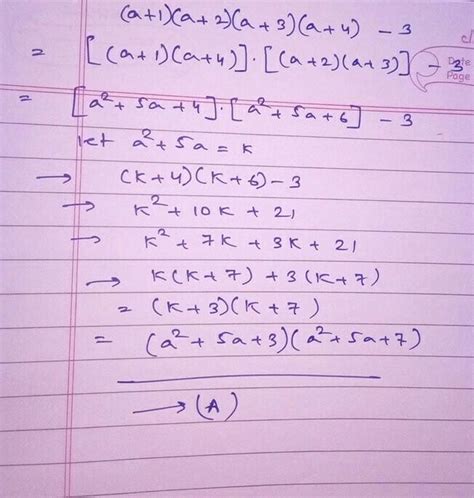 (a+1)(a+2)(a+3)(a+4) - 3
= [(a+1)(a+4)]·[(a+2)(a+3)] - 3
Date
Page
= [a²+5a+4]·[a²+5a+6] - 3
let a²+5a = k
→ (k+4)(k+6)-3
→ k²+10k+21
→ k²+7k+3k+21
→ k(k+7)+3(k+7)
= (k+3)(k+7)
= (a²+5a+3)(a²+5a+7)
→ (A)